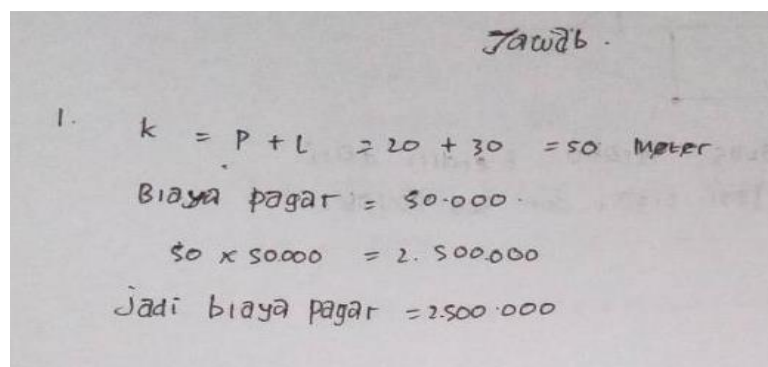 Jawab.
1. k = P + L = 20 + 30 = 50 Meter
Biaya pagar = 50.000.
50 x 50000 = 2.500.000
jadi biaya pagar = 2.500.000